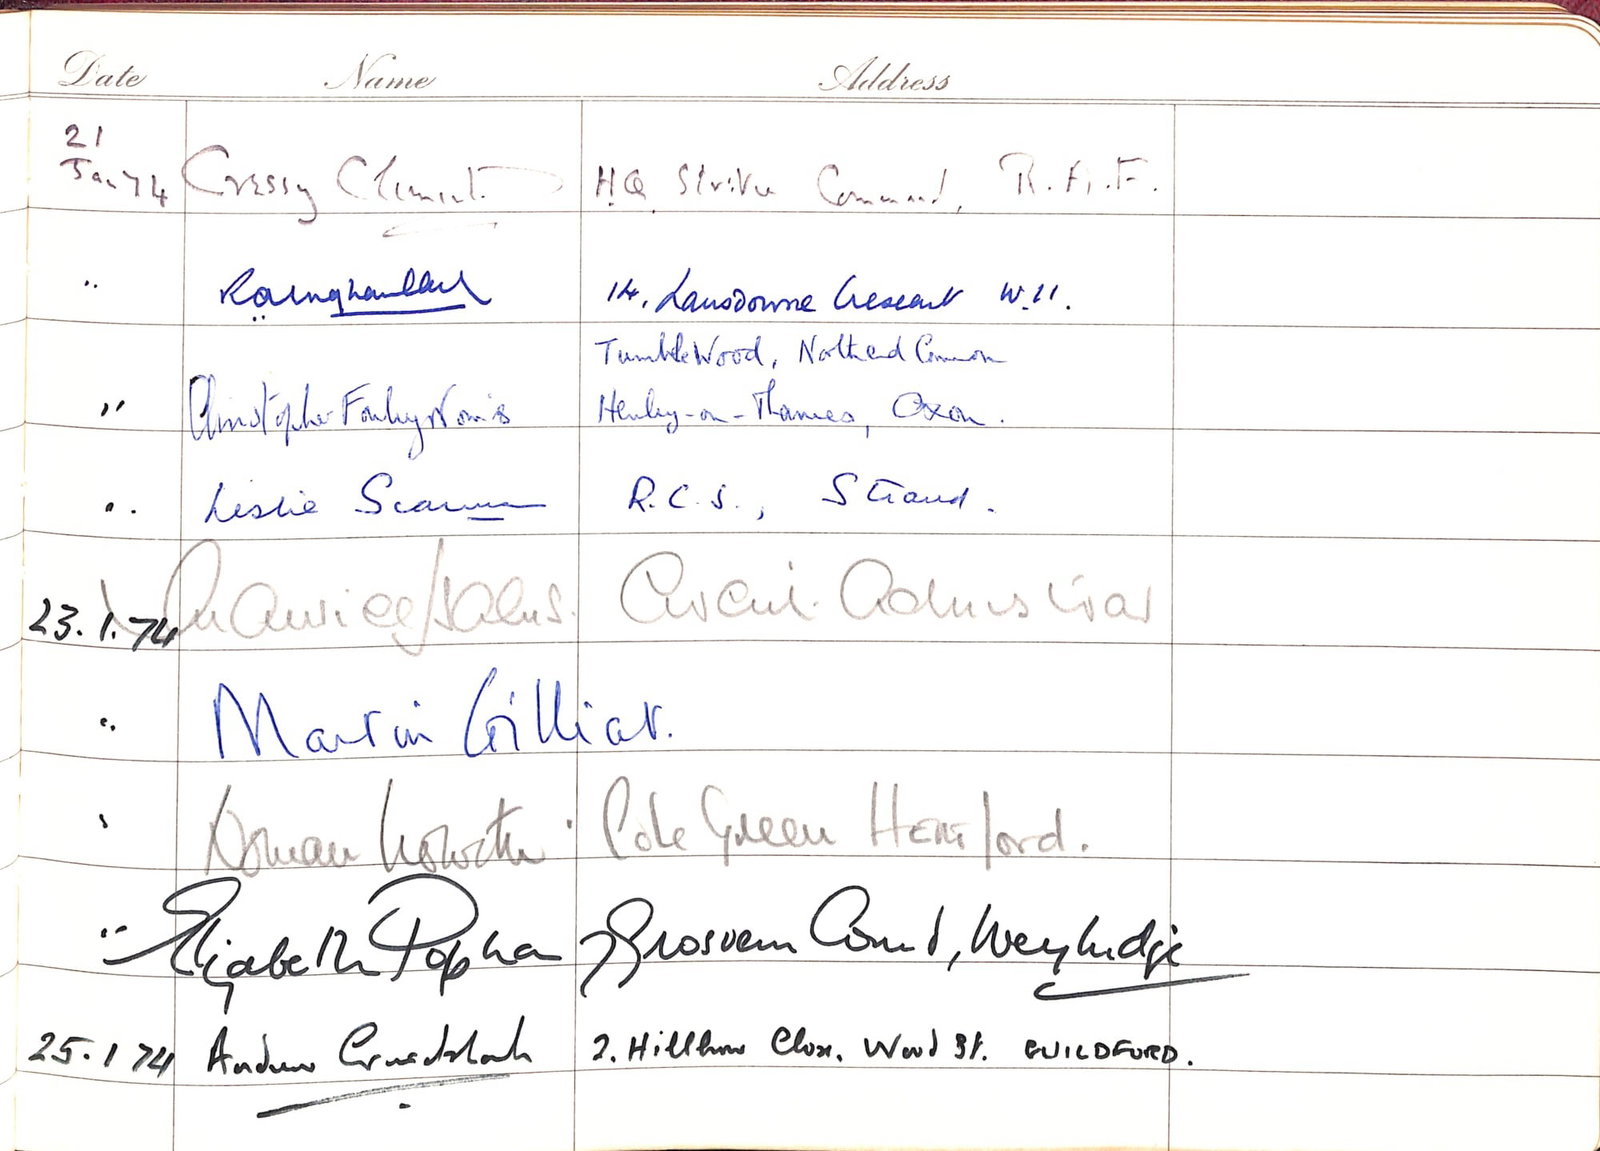 Date Name Address
21
Jan 74 Cressy Clement HQ Strike Command, R.A.F.
" 14. Lansdowne Crescent W.11.
TumbleWood, Northend Common
" Christopher Norris Henley-on-Thames, Oxon.
" Leslie Scarman R.C.S., Strand.
23.1.74 Maurice Circuit
" Martin Gilliat.
" Norman Howorth. Cole Green Hertford.
" Elizabeth Popham Grosvenor Court, Weybridge
25.1 74 Andrew 2. Close. Wood St. GUILDFORD.